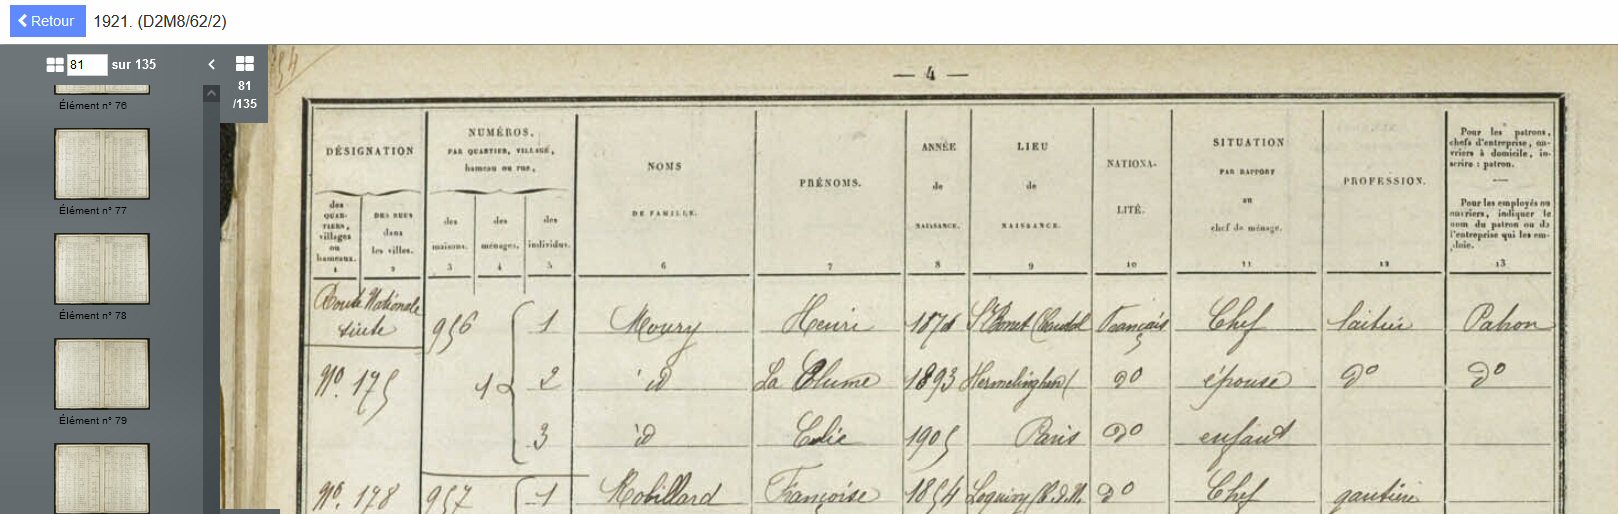 Retour 1921. (D2M8/62/2)
81 sur 135
81
/135
Élément n° 76
Élément n° 77
Élément n° 78
Élément n° 79
— 4 —
DÉSIGNATION
des QUAR- TIERS, villages ou hameaux. 1
DES RUES dans les villes. 2
NUMÉROS,
PAR QUARTIER, VILLAGE,
hameau ou rue,
des maisons. 3
des ménages. 4
des individus. 5
NOMS
DE FAMILLE.
6
PRÉNOMS.
7
ANNÉE
de
NAISSANCE.
8
LIEU
de
NAISSANCE.
9
NATIONA-
LITÉ.
10
SITUATION
PAR RAPPORT
au
chef de ménage.
11
PROFESSION.
12
Pour les patrons,
chefs d'entreprise, ou-
vriers à domicile, in-
scrire : patron.
—
Pour les employés ou
ouvriers, indiquer le
nom du patron ou de
l'entreprise qui les em-
ploie.
13
Route Nationale
suite
956 1 Moury Henri St Bonet Français Chef laitier Patron
No. 175 1 2 id La Plume 1893 Hermelinghen do épouse do do
3 id 1905 Paris do enfant
No. 178 957 1 Robillard Françoise 1854 do Chef